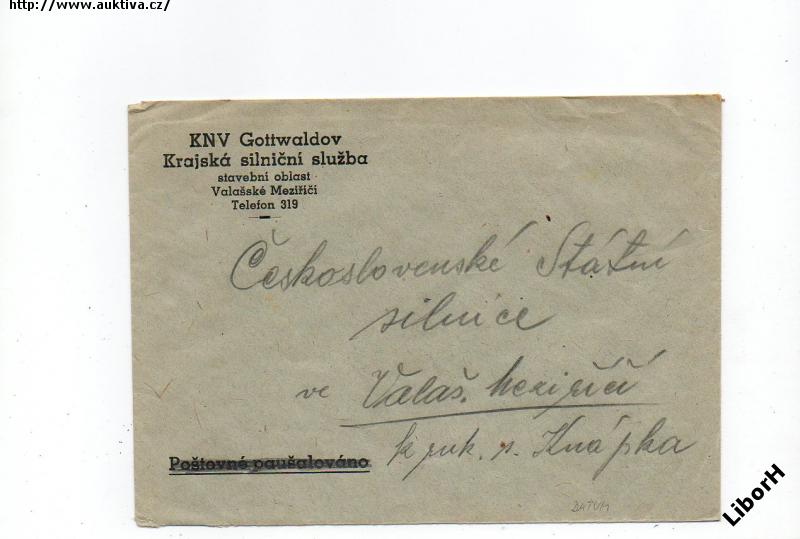 http://www.auktiva.cz/
KNV Gottwaldov
Krajská silniční služba
stavební oblast
Valašské Meziříčí
Telefon 319
Československé Státní
silnice
ve Valaš. Meziříčí
k ruk. p. Knápka
Poštovné paušalováno
DATUM
LiborH